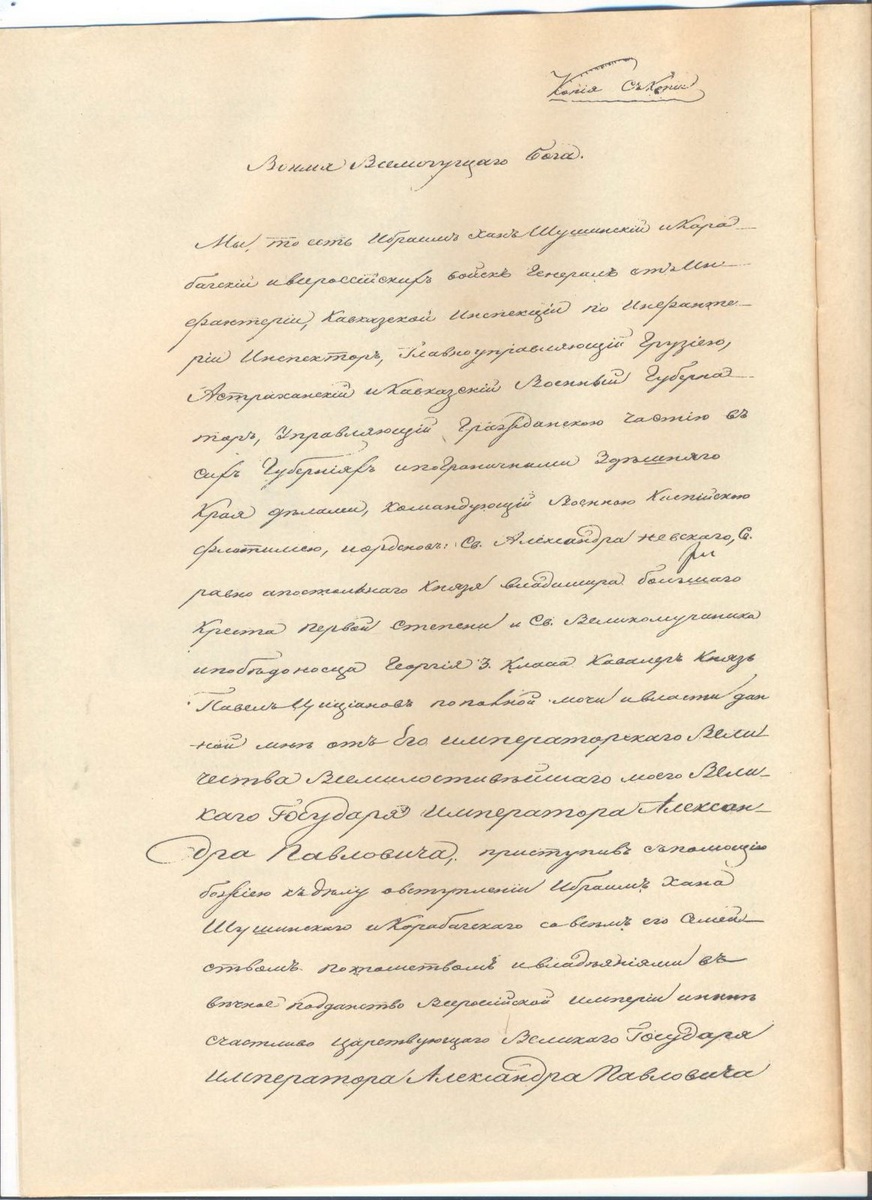 Копія съ Копіи
Во имя Всемогущаго Бога.
Мы, то есть Ибраимъ Ханъ Шушинскій и Кара-
багскій и всероссійскихъ войскъ Генералъ отъ Ин-
фантеріи, Кавказской Инспекціи по Инфанте-
ріи Инспекторъ, Главноуправляющій Грузіею,
Астраханскій и Кавказскій Военный Губерна-
торъ, Управляющій Гражданскою частію въ
сихъ Губерніяхъ и пограничными Здѣшняго
Края дѣлами, Командующій Военною Каспійскою
флотилиею, и орденовъ: Св. Александра Невскаго, Св.
равно апостольнаго Князя Владимира большаго
Креста первой степени и Св. Великомученика
и побѣдоносца Георгія 3. Класа Кавалеръ Князь
Павелъ Циціановъ по полной мочи и власти дан
ной мнѣ отъ Его императорскаго Вели-
чества Всемилостивѣйшаго моего Вели-
каго Государя Императора Алексан-
дра Павловича, приступивъ съ помощію
божіею къ дѣлу о вступленіи Ибраимъ Хана
Шушинскаго и Карабагскаго со всѣмъ его Семей-
ствомъ потомствомъ и владѣніями въ
вѣчное подданство Всеросійской имперіи и нынѣ
счастливо царствующаго Великаго Государя
императора Александра Павловича